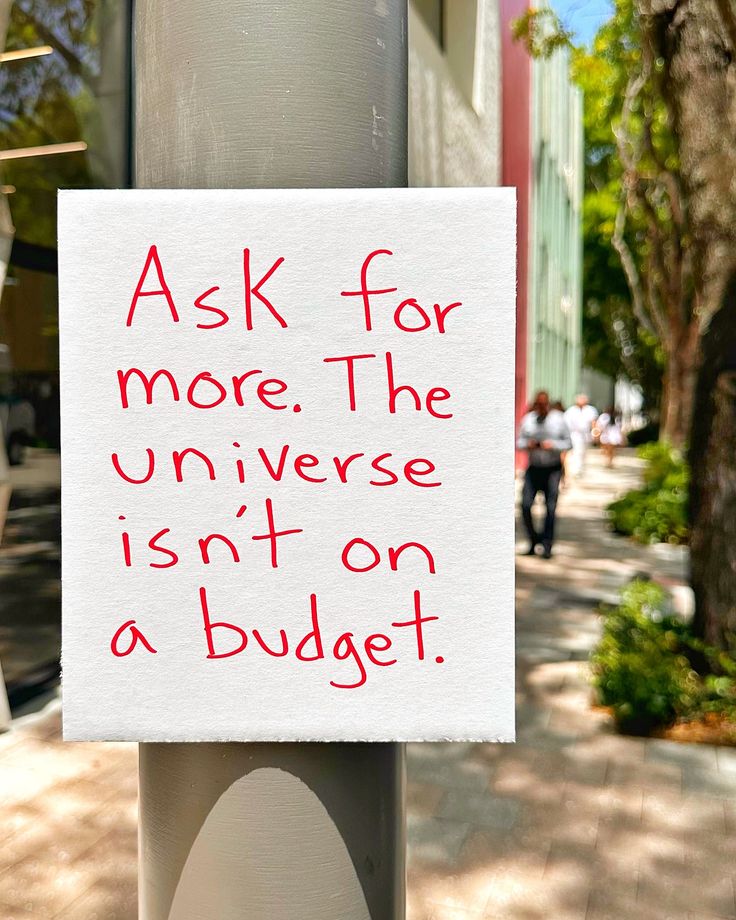 Ask for
more. The
universe
isn't on
a budget.